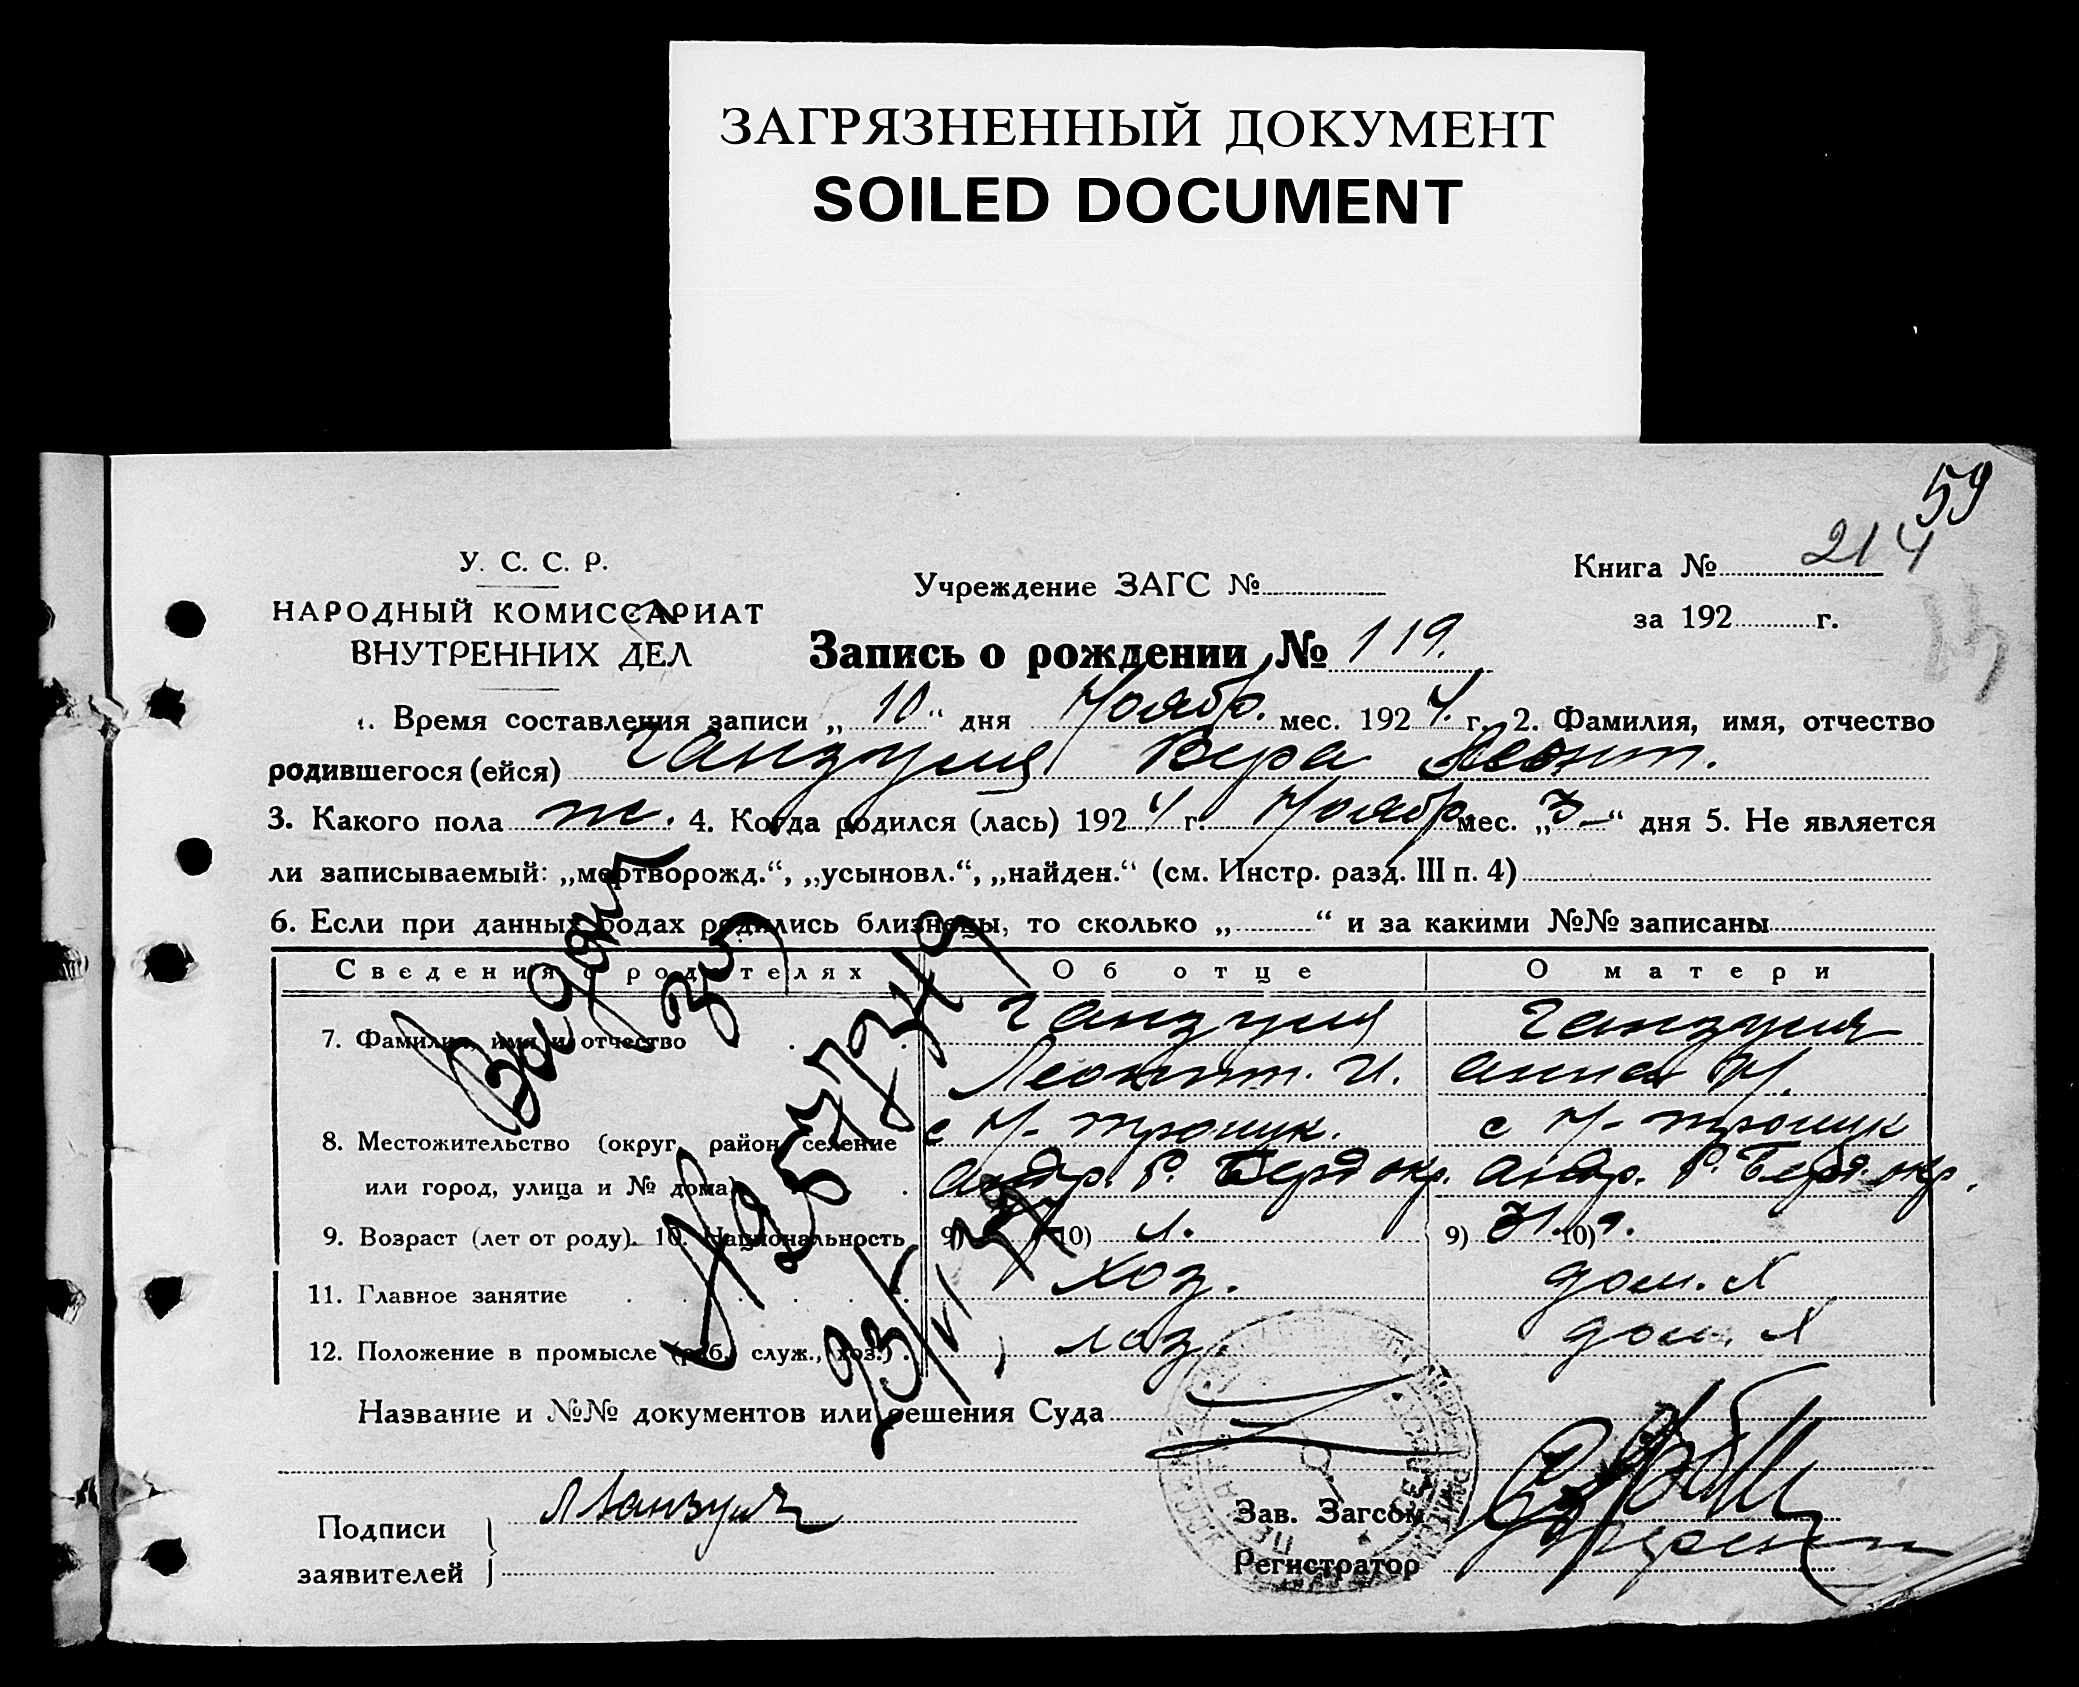 ЗАГРЯЗНЕННЫЙ ДОКУМЕНТ
SOILED DOCUMENT
59
У. С. С. Р.
НАРОДНЫЙ КОМИССАРИАТ
ВНУТРЕННИХ ДЕЛ
Учреждение ЗАГС №
Книга № 214
за 192 г.
Запись о рождении № 119.
1. Время составления записи „ 10 “ дня Ноябр. мес. 192 4. г. 2. Фамилия, имя, отчество
родившегося (ейся) Ганзуля Вера Леонт.
3. Какого пола ж. 4. Когда родился (лась) 192 4 г. Ноябр. мес. „ 3 “ дня 5. Не является
ли записываемый: „мертворожд.“, „усыновл.“, „найден.“ (см. Инстр. разд. III п. 4)
6. Если при данных родах родились близнецы, то сколько „ “ и за какими №№ записаны
Сведения о родителях Об отце О матери
7. Фамилия, имя и отчество Ганзуля Ганзуля
Леонт. И. Анна
8. Местожительство (округ, район, селение с Н- троицк. с Н- троицк
или город, улица и № дома) Андр. Р. Берд окр. Андр. Р. Берд. окр.
9. Возраст (лет от роду). 10. Национальность 9) 10) 9) 31. 10)
11. Главное занятие хоз. дом. х
12. Положение в промысле (раб., служ., хоз.) хоз. дом. х
Выдан
№
Название и №№ документов или решения Суда
Подписи
заявителей
Л Ганзуля
Зав. Загсом
Регистратор